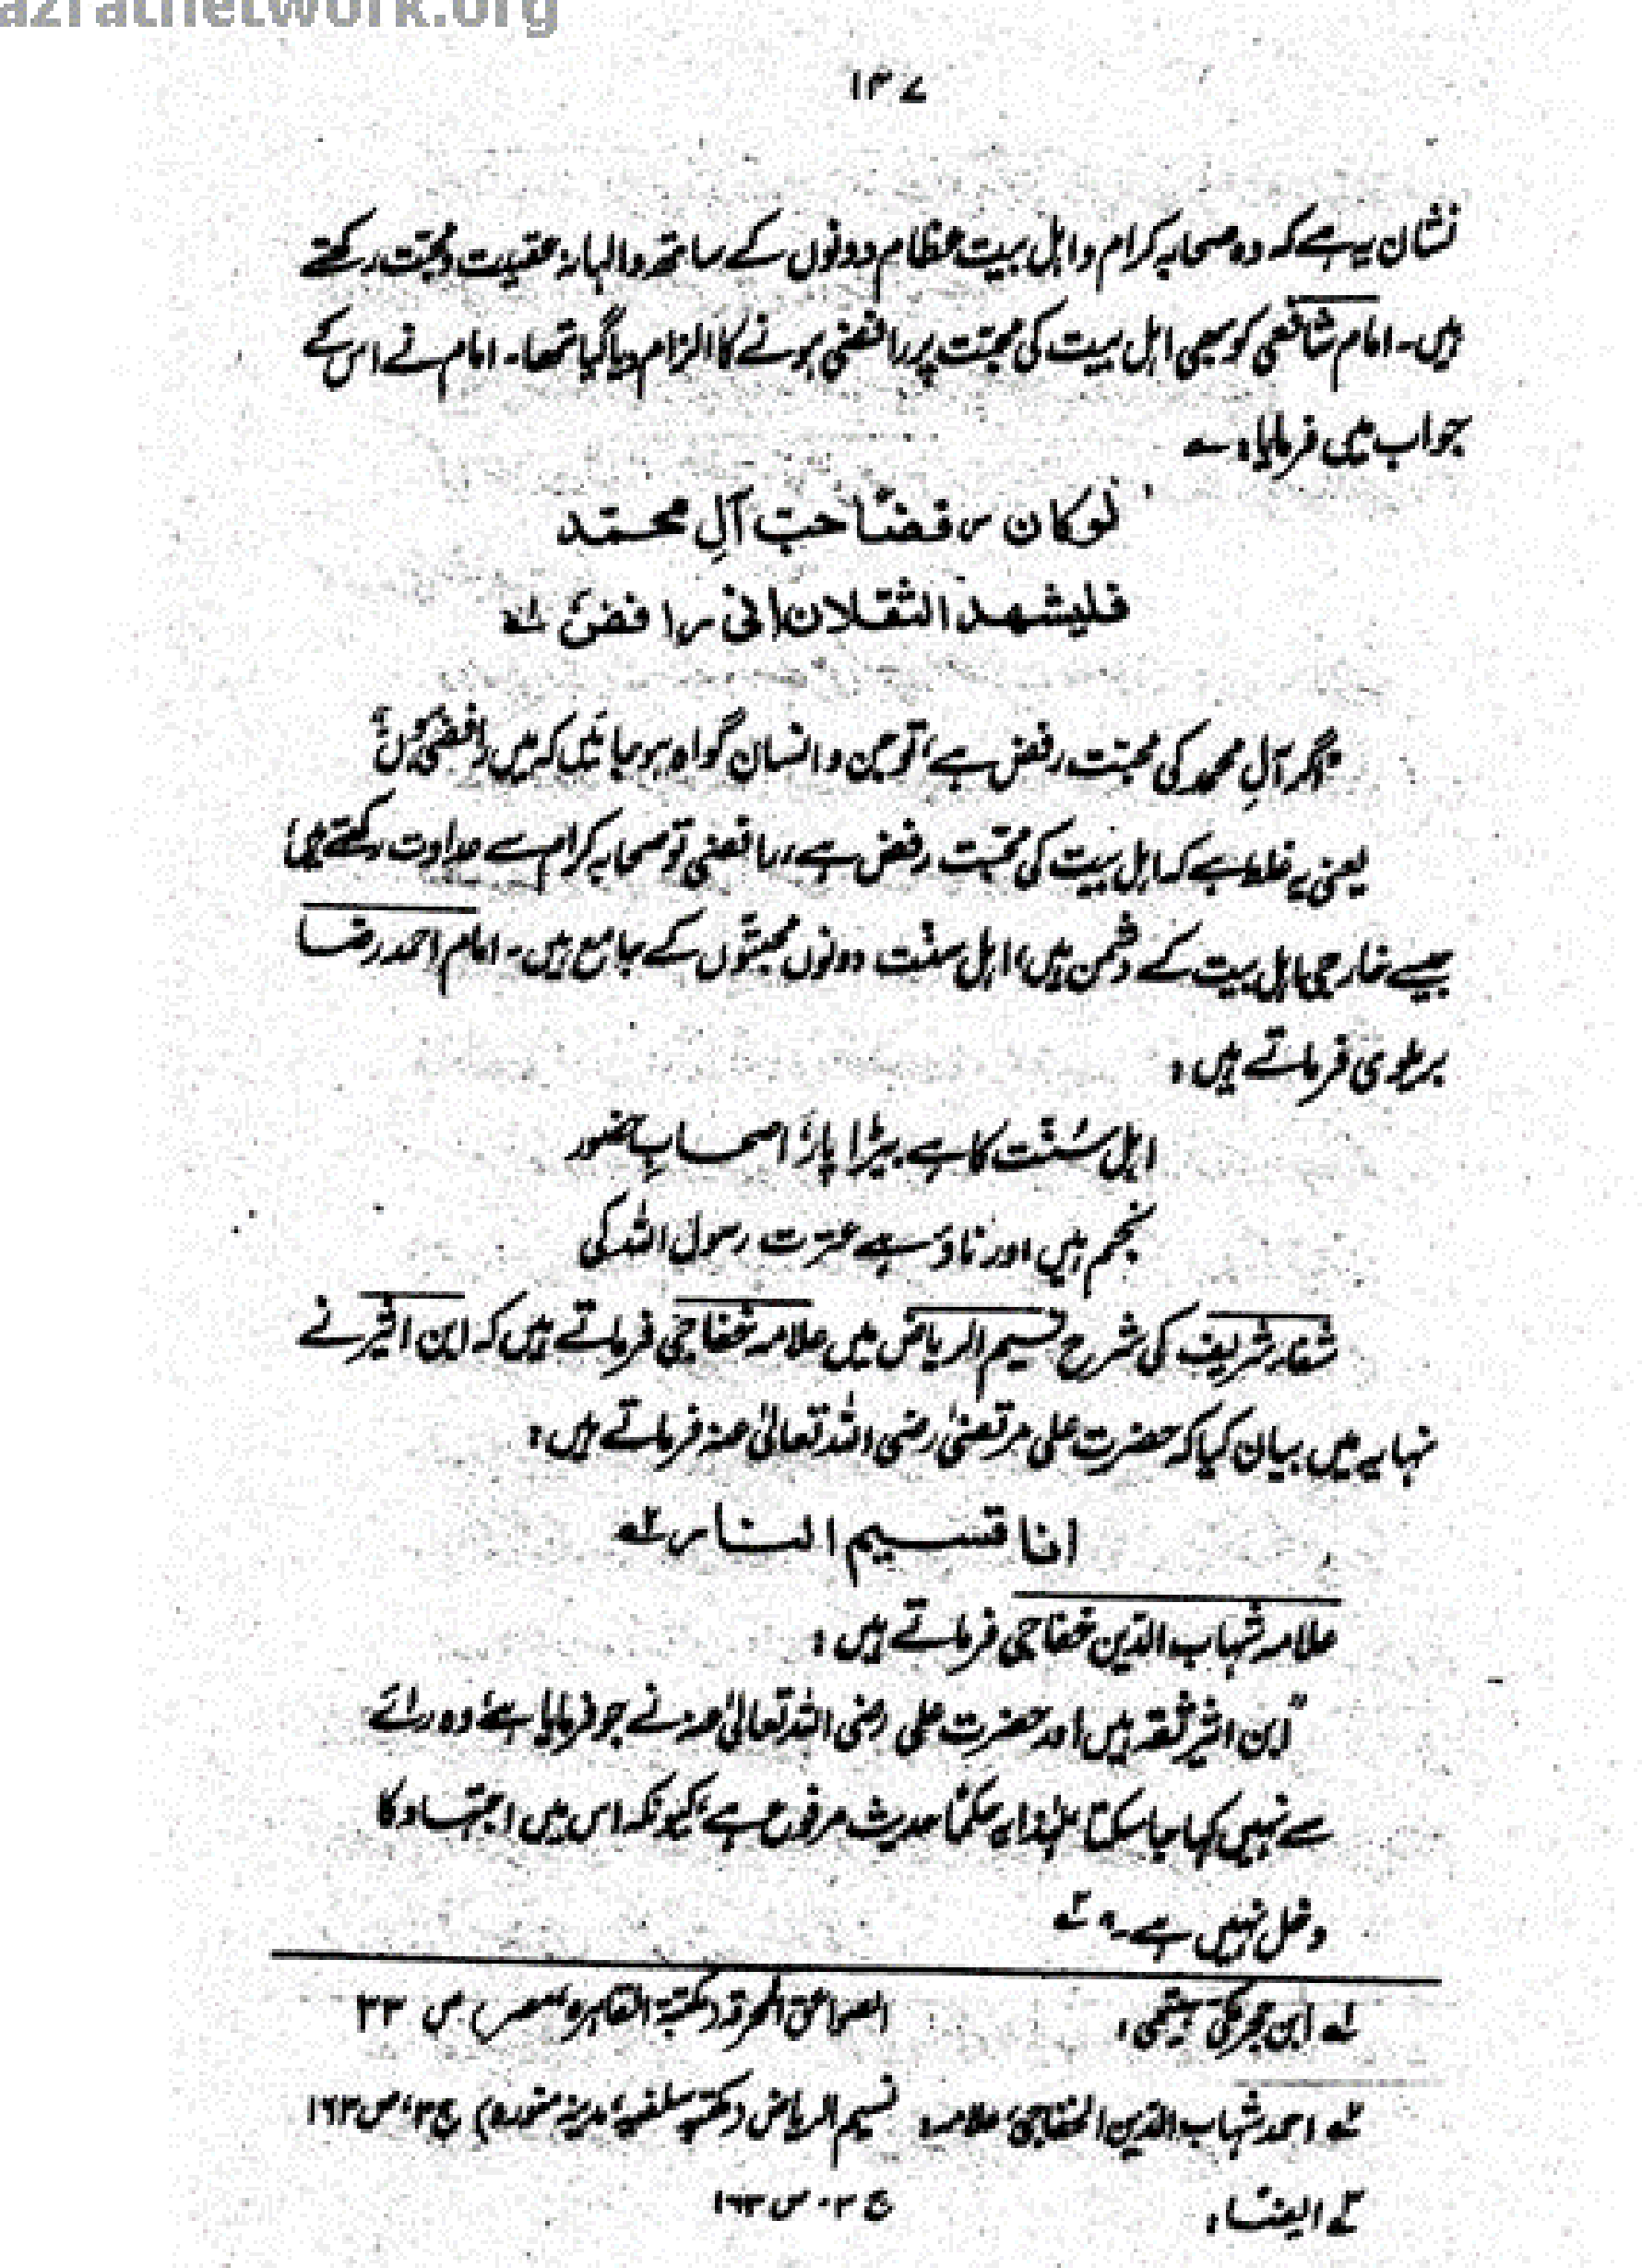 azratnetwork.org
۱۳۷
نشان یہ ہے کہ وہ صحابہ کرام و اہل بیت عظام دونوں کے ساتھ والہانہ عقیدت و محبت رکھتے
ہیں۔ امام شافعی کو بھی اہل بیت کی محبت پر رافضی ہونے کا الزام دیا گیا تھا۔ امام نے اس کے
جواب میں فرمایا: ؎
لوکان رفضًا حبّ آلِ محمّد
فلیشھد الثقلان انی رافضٗ ۱ے
"اگر آلِ محمد کی محبت رفض ہے، تو جن و انسان گواہ ہو جائیں کہ میں رافضی ہوں"
یعنی یہ غلط ہے کہ اہل بیت کی محبّت رفض ہے، رافضی تو صحابہ کرام سے عداوت رکھتے ہیں،
جیسے خارجی اہل بیت کے دشمن ہیں، اہل سنّت دونوں محبتوں کے جامع ہیں۔ امام احمد رضا
بریلوی فرماتے ہیں:
اہل سُنّت کا ہے بیڑا پار، اصحابِ حضور
نجم ہیں اور ناؤ ہے عترت رسول اللہ کی
شفاء شریف کی شرح نسیم الریاض میں علامہ خفاجی فرماتے ہیں کہ ابن اثیر نے
نہایہ میں بیان کیا کہ حضرت علی مرتضیٰ رضی اللہ تعالیٰ عنہ فرماتے ہیں:
انا قسیم النار ۲ے
علامہ شہاب الدّین خفاجی فرماتے ہیں:
"ابن اثیر ثقہ ہیں اور حضرت علی رضی اللہ تعالیٰ عنہ نے جو فرمایا ہے، وہ رائے
سے نہیں کہا جا سکتا لہٰذا یہ حکماً حدیث مرفوع ہے، کیونکہ اس میں اجتہاد کا
دخل نہیں ہے۔" ۳ے
۱ے ابن حجر مکی ہیتمی: الصواعق المحرقہ (مکتبۃ القاہرہ، مصر) ص ۳۳
۲ے احمد شہاب الدّین الخفاجی، علامہ: نسیم الریاض (مکتبہ سلفیہ، مدینہ منورہ) ج۳، ص۱۶۳
۳ے ایضًا: ج ۳۔ ص ۱۶۳